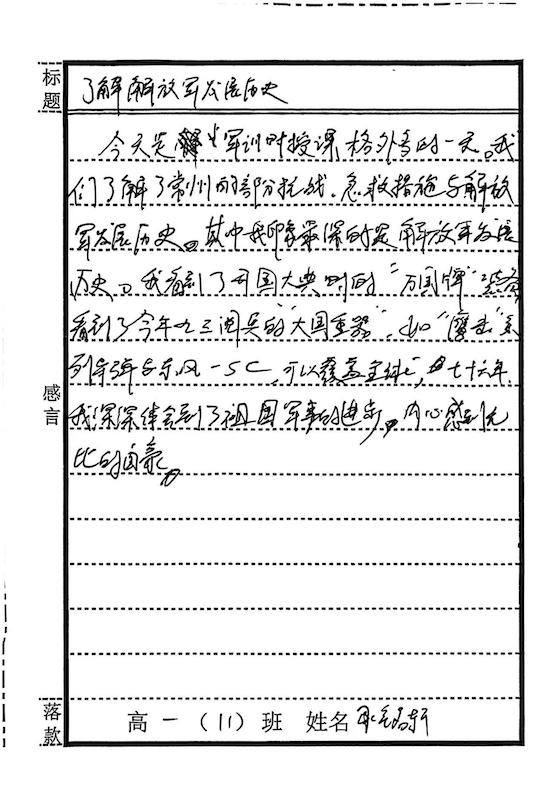 标题
了解解放军发展历史
今天是军训时授课格外的一天。我
们了解了常州的部份抗战、急救措施与解放
军发展历史。其中我印象最深的是解放军发展
历史。我看到了开国大典时的“万国牌”装备
看到了今年九三阅兵的“大国重器”,如“鹰击”系
列导弹与东风-5C,可以覆盖全球,七十六年,
感言
我深深体会到了祖国军事的进步,内心感到无
比的自豪。
落款
高一(11)班 姓名